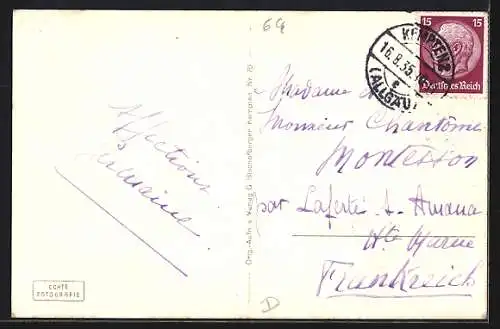 64
KEMPTEN 2
16.8.35
(ALLGÄU)
15 15
Deutsches Reich
Affections
Madame
Monsieur Chantôme
Montesson
par Laferté s. Amance
Hte Marne
Frankreich
Orig.-Aufn. u. Verlag G. Bischofberger Kempten Nr.
ECHTE
FOTOGRAFIE
D